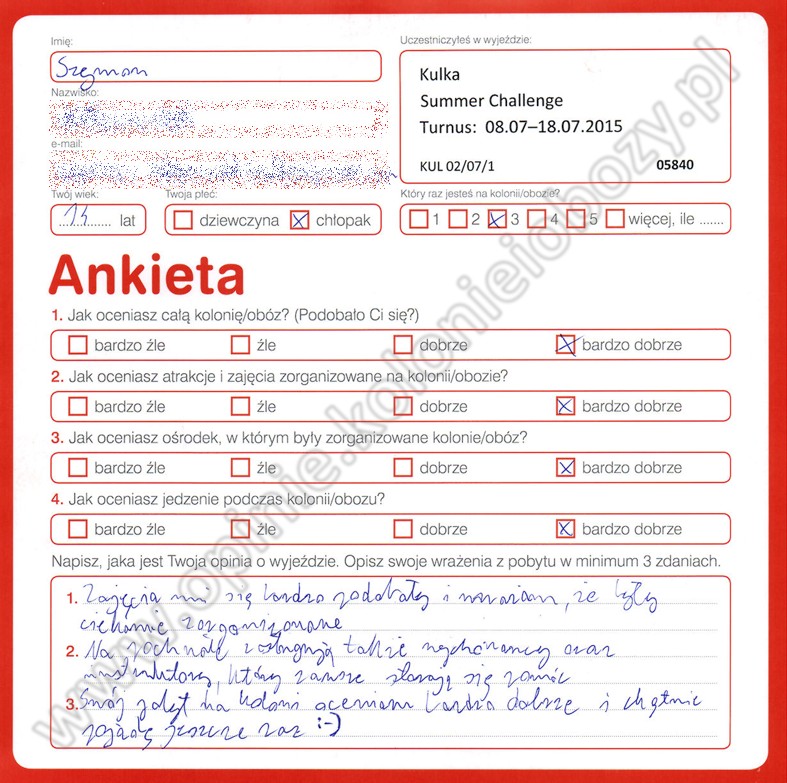 Imię:
Szymon
Nazwisko:
e-mail:
Twój wiek:
14 lat
Twoja płeć:
dziewczyna chłopak
Uczestniczyłeś w wyjeździe:
Kulka
Summer Challenge
Turnus: 08.07–18.07.2015
KUL 02/07/1 05840
Który raz jesteś na kolonii/obozie?
1 2 3 4 5 więcej, ile .......
Ankieta
1. Jak oceniasz całą kolonię/obóz? (Podobało Ci się?)
bardzo źle źle dobrze bardzo dobrze
2. Jak oceniasz atrakcje i zajęcia zorganizowane na kolonii/obozie?
bardzo źle źle dobrze bardzo dobrze
3. Jak oceniasz ośrodek, w którym były zorganizowane kolonie/obóz?
bardzo źle źle dobrze bardzo dobrze
4. Jak oceniasz jedzenie podczas kolonii/obozu?
bardzo źle źle dobrze bardzo dobrze
Napisz, jaka jest Twoja opinia o wyjeździe. Opisz swoje wrażenia z pobytu w minimum 3 zdaniach.
1. Zajęcia mi się bardzo podobały i uważam, że były
ciekawie zorganizowane
2. Na pochwałę zasługują także wychowawcy oraz
instruktorzy, którzy zawsze starają się pomóc
3. Swój pobyt na kolonii oceniam bardzo dobrze i chętnie
pojadę jeszcze raz :-)
www.opinie.kolonieiobozy.pl